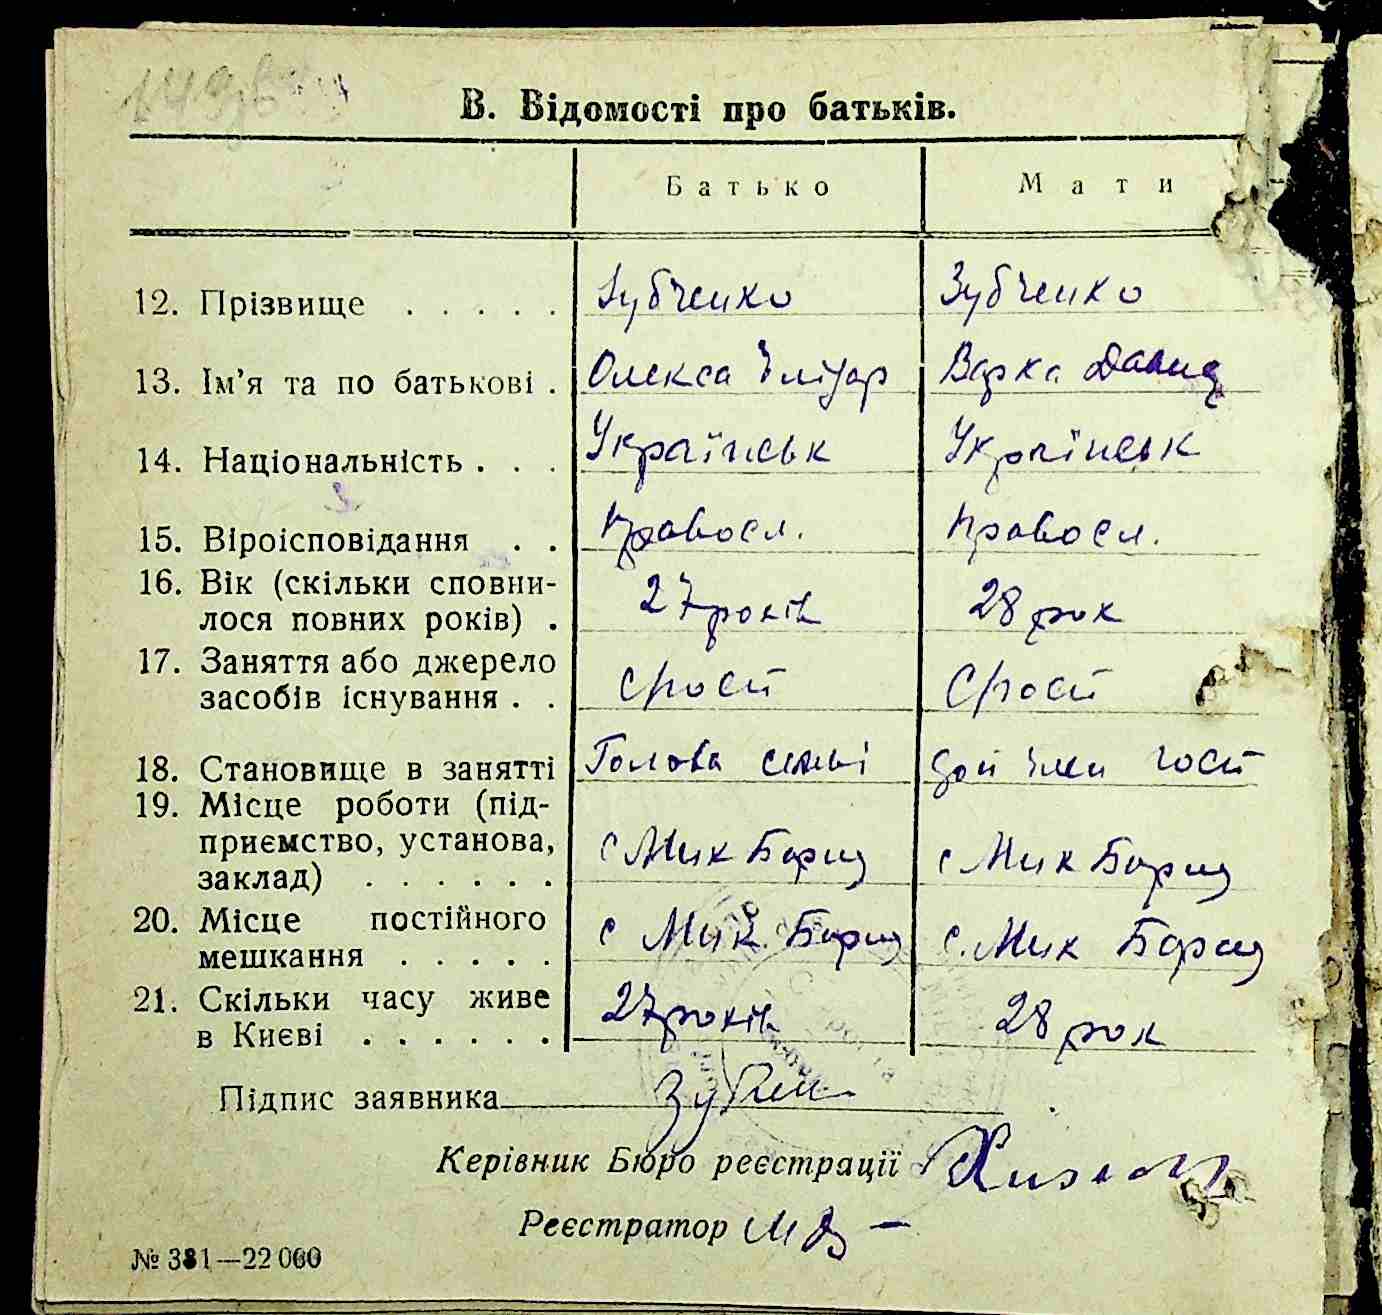 В. Відомості про батьків.
Батько Мати
12. Прізвище . . . . . Зубченко Зубченко
13. Ім'я та по батькові . Олекса Варка Давид
14. Національність . . . Українськ Українськ
15. Віроісповідання . . Правосл. Правосл.
16. Вік (скільки сповни-
лося повних років) . 27 років 28 рок
17. Заняття або джерело
засобів існування . .
18. Становище в занятті Голова сімьі член госп
19. Місце роботи (під-
приємство, установа,
заклад) . . . . . . с Мик Борщ с Мик Борщ
20. Місце постійного
мешкання . . . . . с Мик. Борщ с. Мик Борщ
21. Скільки часу живе
в Києві . . . . . . 27 років 28 рок
Підпис заявника Зубчен
Керівник Бюро реєстрації
Реєстратор
№ 381—22 000